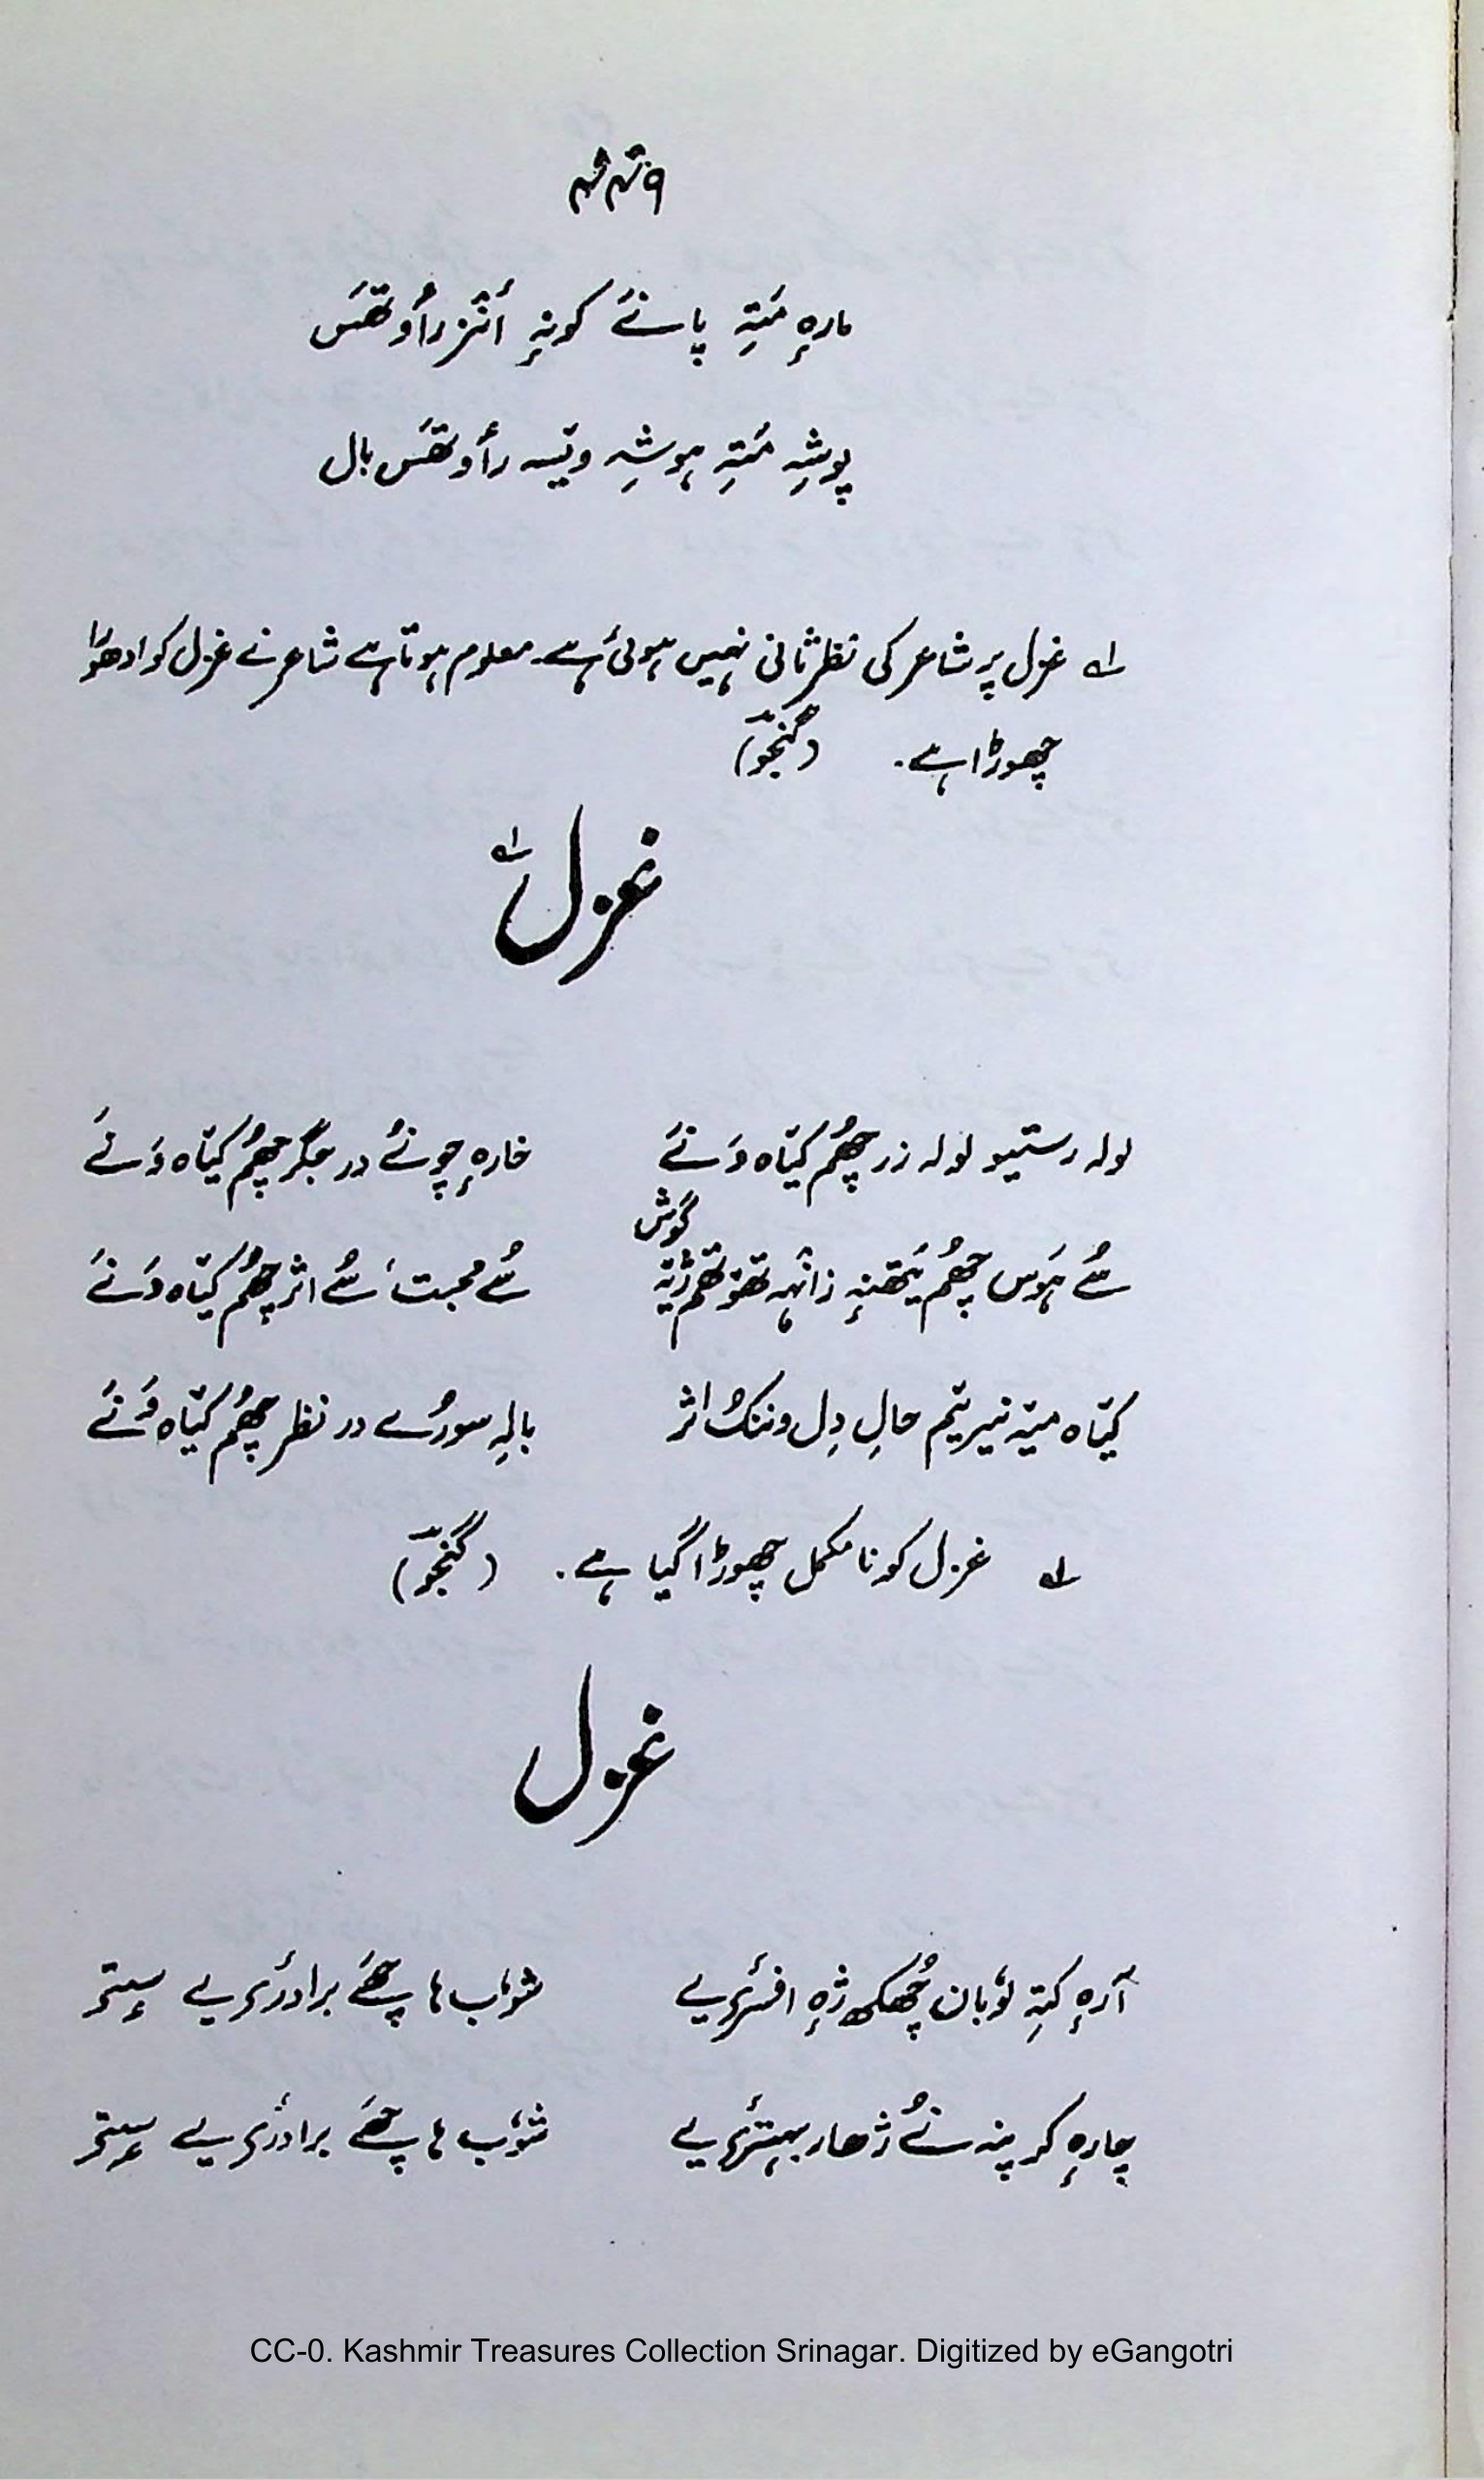 مارٕہ مَتہِ پانےٚ کونہٕ أنٛزرأوتھس
پوشہِ مَتہِ ہوشہِ ویسہ رأوتھس بال
لہ غزل پر شاعر کی نظر ثانی نہیں ہوئی ہے۔ معلوم ہوتا ہے شاعر نے غزل کو ادھورا
چھوڑا ہے۔ (گنجو)
غزل لہ
لولہ رستیو لولہ زر چھُم کیٛاہ وَنےٚ
خارٕہ چونےٚ در جگر چھُم کیٛاہ وَنےٚ
گوش
سُے ہَوَس چھُم یَتھنہٕ زانٛہہ تھوٚتھم ژیٚتہ
سُے محبت سُے اثر چھُم کیٛاہ وَنےٚ
کیٛاہ میٚتہ نیریٚم حالِ دِل ونُنک اثر
بالہِ سورُے در نظر چھُم کیٛاہ وَنےٚ
لہ غزل کو نامکمل چھوڑا گیا ہے۔ (گنجو)
غزل
آرٕہ کَتہِ لوٗبان چھُکھ ژٕہ افسٔری یے
شوٗب ہا چھےٚ برادٔری یے سٟتۍ
چارٕہ کر پنہ نےٚ ژھار بہتٔری یے
شوٗب ہا چھےٚ برادٔری یے سٟتۍ
CC-0. Kashmir Treasures Collection Srinagar. Digitized by eGangotri